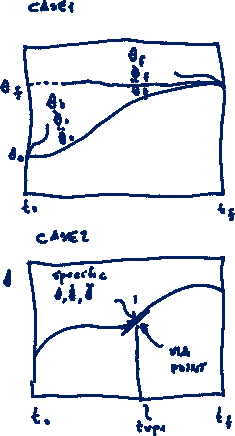 CASE1
θf
θ̇f
θ̈f
θf
θ0
θ̇0
θ̈0
θ0
t0 tf
CASE2
specific
θ, θ̇, θ̈
θ
VIA
POINT
t0 tf